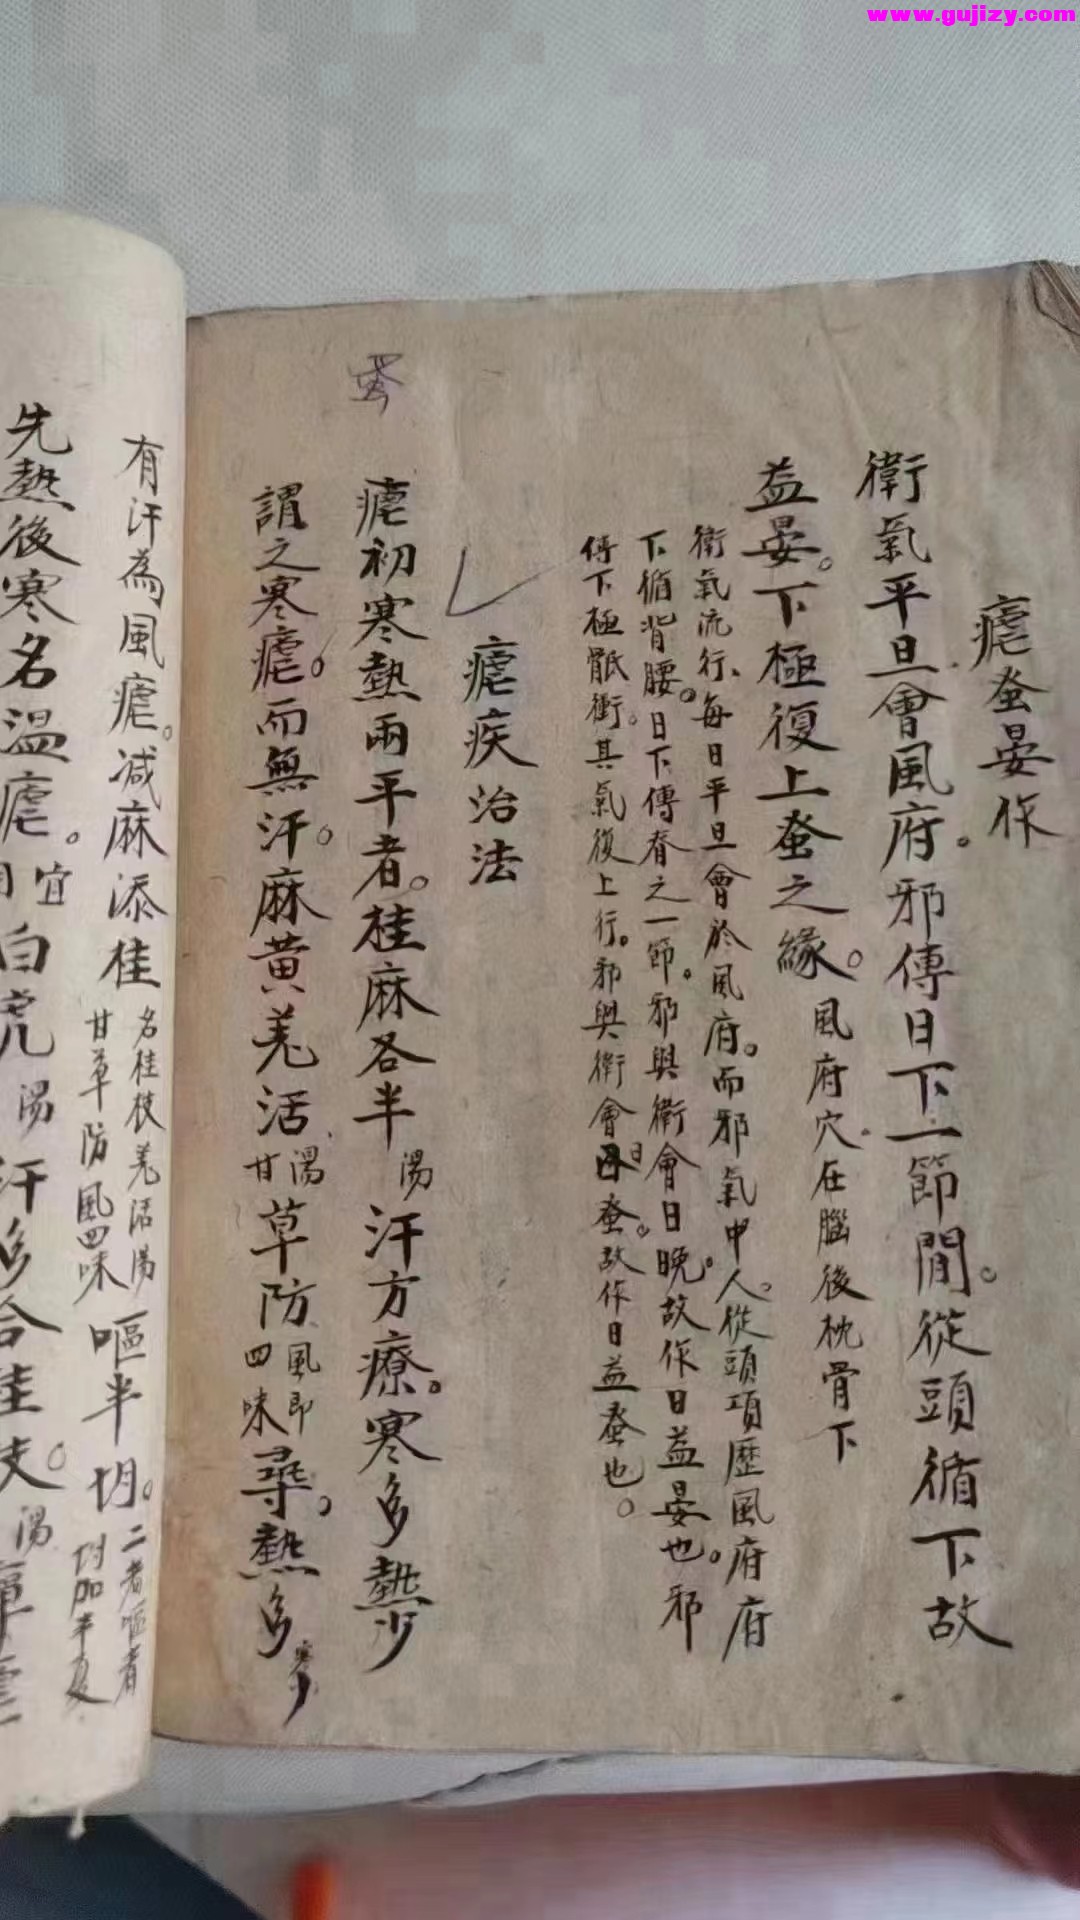 www.gujizy.com
瘧蚤晏作
衛氣平旦會風府。邪傳日下一節間。從頭循下故
益晏。下極復上蚤之緣。風府穴在腦後枕骨下
衛氣流行、每日平旦會於風府。而邪氣中人。從頭項歷風府府
下循背腰。日下傳脊之一節。邪與衛會日晚。故作日益晏也。邪
傳下極骶衝。其氣復上行。邪與衛會日蚤。故作日益蚤也。
瘧疾治法
瘧初寒熱兩平者。桂麻各半湯汗方療。寒多熱少
謂之寒瘧。而無汗。麻黃羌活湯甘草防風即四味尋。熱多寒少
有汗為風瘧。減麻添桂名桂枝羌活湯甘草防風四味嘔半切。二者嘔者均加半夏
先熱後寒名溫瘧。宜用白虎湯汗多合桂枝。湯